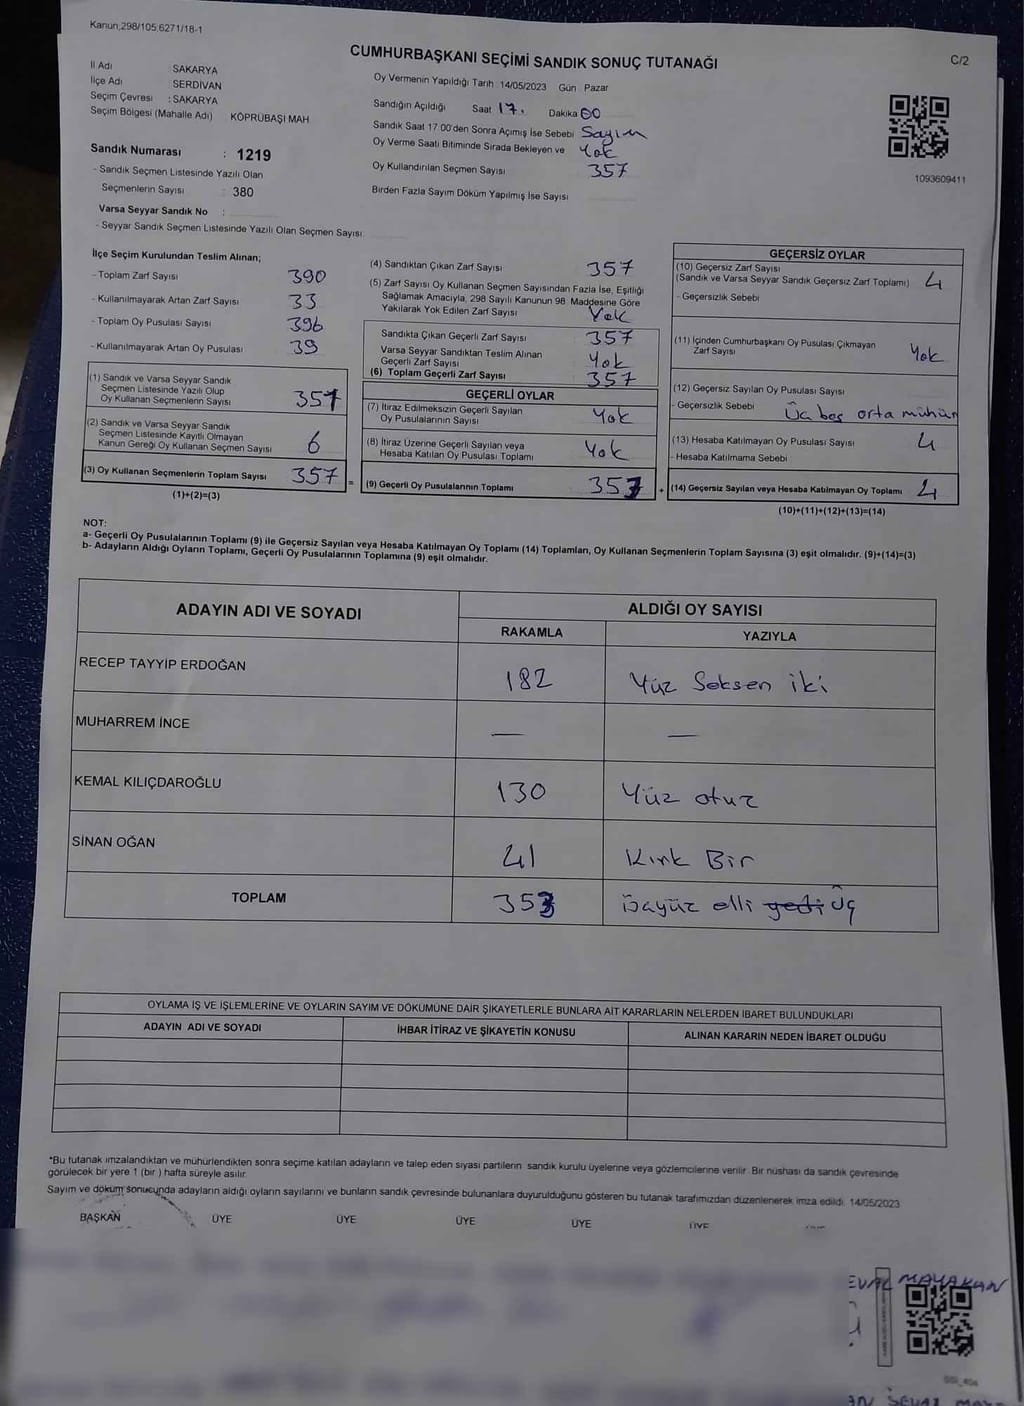 Kanun;298/105;6271/18-1
CUMHURBAŞKANI SEÇİMİ SANDIK SONUÇ TUTANAĞI
C/2
İl Adı SAKARYA
İlçe Adı SERDİVAN
Seçim Çevresi : SAKARYA
Seçim Bölgesi (Mahalle Adı) KÖPRÜBAŞI MAH
Sandık Numarası : 1219
- Sandık Seçmen Listesinde Yazılı Olan
Seçmenlerin Sayısı : 380
Varsa Seyyar Sandık No :
- Seyyar Sandık Seçmen Listesinde Yazılı Olan Seçmen Sayısı
Oy Vermenin Yapıldığı Tarih : 14/05/2023 Gün : Pazar
Sandığın Açıldığı Saat 17. Dakika 00
Sandık Saat 17:00'den Sonra Açımış İse Sebebi Sayım
Oy Verme Saati Bitiminde Sırada Bekleyen ve Yok
Oy Kullandırılan Seçmen Sayısı 357
Birden Fazla Sayım Döküm Yapılmış İse Sayısı
1093609411
İlçe Seçim Kurulundan Teslim Alınan;
- Toplam Zarf Sayısı 390
- Kullanılmayarak Artan Zarf Sayısı 33
- Toplam Oy Pusulası Sayısı 396
- Kullanılmayarak Artan Oy Pusulası 39
(1) Sandık ve Varsa Seyyar Sandık
Seçmen Listesinde Yazılı Olup
Oy Kullanan Seçmenlerin Sayısı 351
(2) Sandık ve Varsa Seyyar Sandık
Seçmen Listesinde Kayıtlı Olmayan
Kanun Gereği Oy Kullanan Seçmen Sayısı 6
(3) Oy Kullanan Seçmenlerin Toplam Sayısı 357 =
(1)+(2)=(3)
(4) Sandıktan Çıkan Zarf Sayısı 357
(5) Zarf Sayısı Oy Kullanan Seçmen Sayısından Fazla İse, Eşitliği
Sağlamak Amacıyla, 298 Sayılı Kanunun 98. Maddesine Göre
Yakılarak Yok Edilen Zarf Sayısı Yok
Sandıkta Çıkan Geçerli Zarf Sayısı 357
Varsa Seyyar Sandıktan Teslim Alınan
Geçerli Zarf Sayısı Yok
(6) Toplam Geçerli Zarf Sayısı 357
GEÇERLİ OYLAR
(7) İtiraz Edilmeksizin Geçerli Sayılan
Oy Pusulalarının Sayısı Yok
(8) İtiraz Üzerine Geçerli Sayılan veya
Hesaba Katılan Oy Pusulası Toplamı Yok
(9) Geçerli Oy Pusulalarının Toplamı 353 +
GEÇERSİZ OYLAR
(10) Geçersiz Zarf Sayısı
(Sandık ve Varsa Seyyar Sandık Geçersiz Zarf Toplamı) 4
- Geçersizlik Sebebi
(11) İçinden Cumhurbaşkanı Oy Pusulası Çıkmayan
Zarf Sayısı Yok
(12) Geçersiz Sayılan Oy Pusulası Sayısı
- Geçersizlik Sebebi Üç boş orta mühür
(13) Hesaba Katılmayan Oy Pusulası Sayısı 4
- Hesaba Katılmama Sebebi
(14) Geçersiz Sayılan veya Hesaba Katılmayan Oy Toplamı 4
(10)+(11)+(12)+(13)=(14)
NOT:
a- Geçerli Oy Pusulalarının Toplamı (9) ile Geçersiz Sayılan veya Hesaba Katılmayan Oy Toplamı (14) Toplamları, Oy Kullanan Seçmenlerin Toplam Sayısına (3) eşit olmalıdır. (9)+(14)=(3)
b- Adayların Aldığı Oyların Toplamı, Geçerli Oy Pusulalarının Toplamına (9) eşit olmalıdır.
ADAYIN ADI VE SOYADI
ALDIĞI OY SAYISI
RAKAMLA YAZIYLA
RECEP TAYYİP ERDOĞAN 182 Yüz Seksen iki
MUHARREM İNCE — —
KEMAL KILIÇDAROĞLU 130 Yüz otuz
SİNAN OĞAN 41 Kırk Bir
TOPLAM 353 üçyüz elli yedi üç
OYLAMA İŞ VE İŞLEMLERİNE VE OYLARIN SAYIM VE DÖKÜMÜNE DAİR ŞİKAYETLERLE BUNLARA AİT KARARLARIN NELERDEN İBARET BULUNDUKLARI
ADAYIN ADI VE SOYADI İHBAR İTİRAZ VE ŞİKAYETİN KONUSU ALINAN KARARIN NEDEN İBARET OLDUĞU
*Bu tutanak imzalandıktan ve mühürlendikten sonra seçime katılan adayların ve talep eden siyasi partilerin sandık kurulu üyelerine veya gözlemcilerine verilir. Bir nüshası da sandık çevresinde
görülecek bir yere 1 (bir) hafta süreyle asılır.
Sayım ve döküm sonucunda adayların aldığı oyların sayılarını ve bunların sandık çevresinde bulunanlara duyurulduğunu gösteren bu tutanak tarafımızdan düzenlenerek imza edildi. 14/05/2023
BAŞKAN ÜYE ÜYE ÜYE ÜYE ÜYE
MAYAKAN